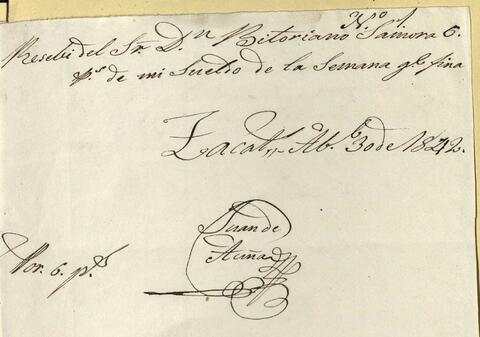 N.o 1
Resebi del Sr. D.n Bitoriano Samora 6.
p.s de mi Sueldo de la Semana q.e fina
Zacat.s Ab.l 30 de 1842.
Juan de
Acuña
Por. 6. p.s